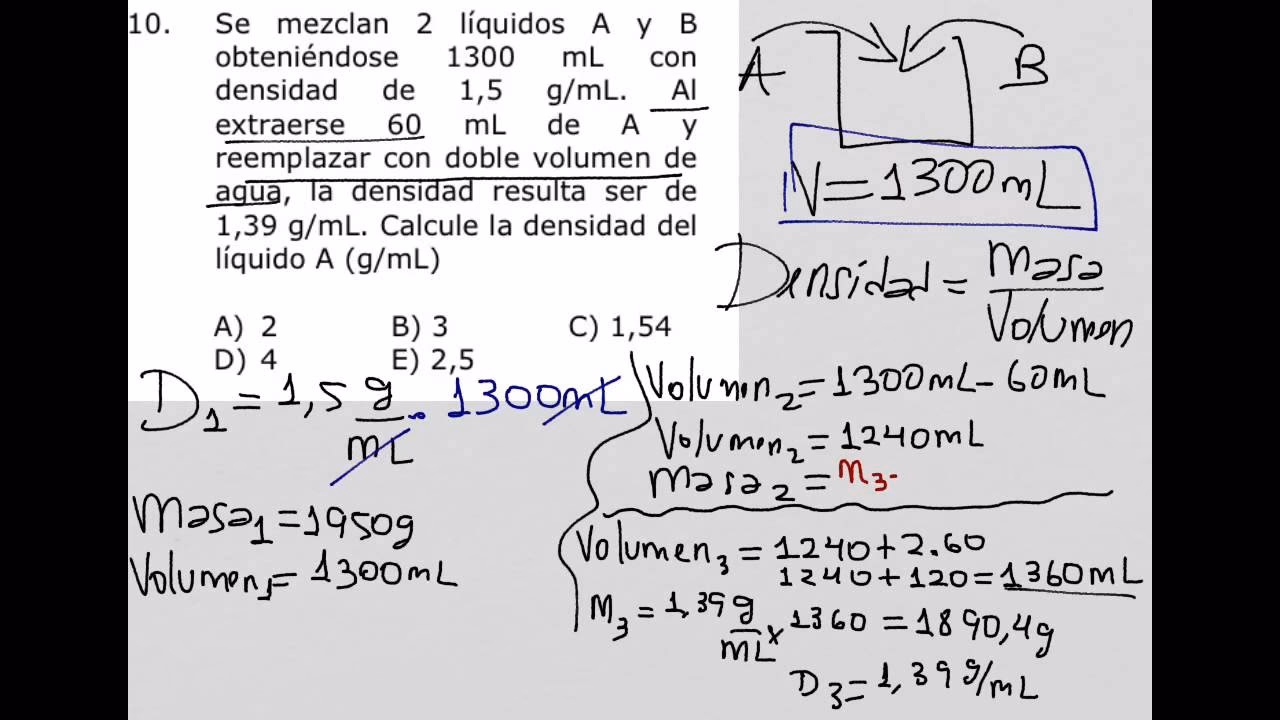 10. Se mezclan 2 líquidos A y B
obteniéndose 1300 mL con
densidad de 1,5 g/mL. Al
extraerse 60 mL de A y
reemplazar con doble volumen de
agua, la densidad resulta ser de
1,39 g/mL. Calcule la densidad del
líquido A (g/mL)
A) 2 B) 3 C) 1,54
D) 4 E) 2,5
A B
V=1300mL
Densidad = masa/Volumen
D1 = 1,5 g/mL . 1300mL
masa1=1950g
Volumen1= 1300mL
Volumen2=1300mL-60mL
Volumen2=1240mL
masa2=M3-
Volumen3=1240+2.60
1240+120=1360mL
M3=1,39g/mL x 1360=1890,4g
D3=1,39g/mL